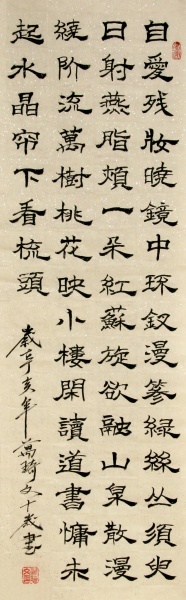 自愛残妝曉鏡中环釵漫篸緑絲丛須臾
日射燕脂頰一朵紅蘇旋欲融山泉散漫
繞阶流萬樹桃花映小樓閑讀道書慵未
起水晶帘下看梳頭
歲丁亥年萬琦文十歲書